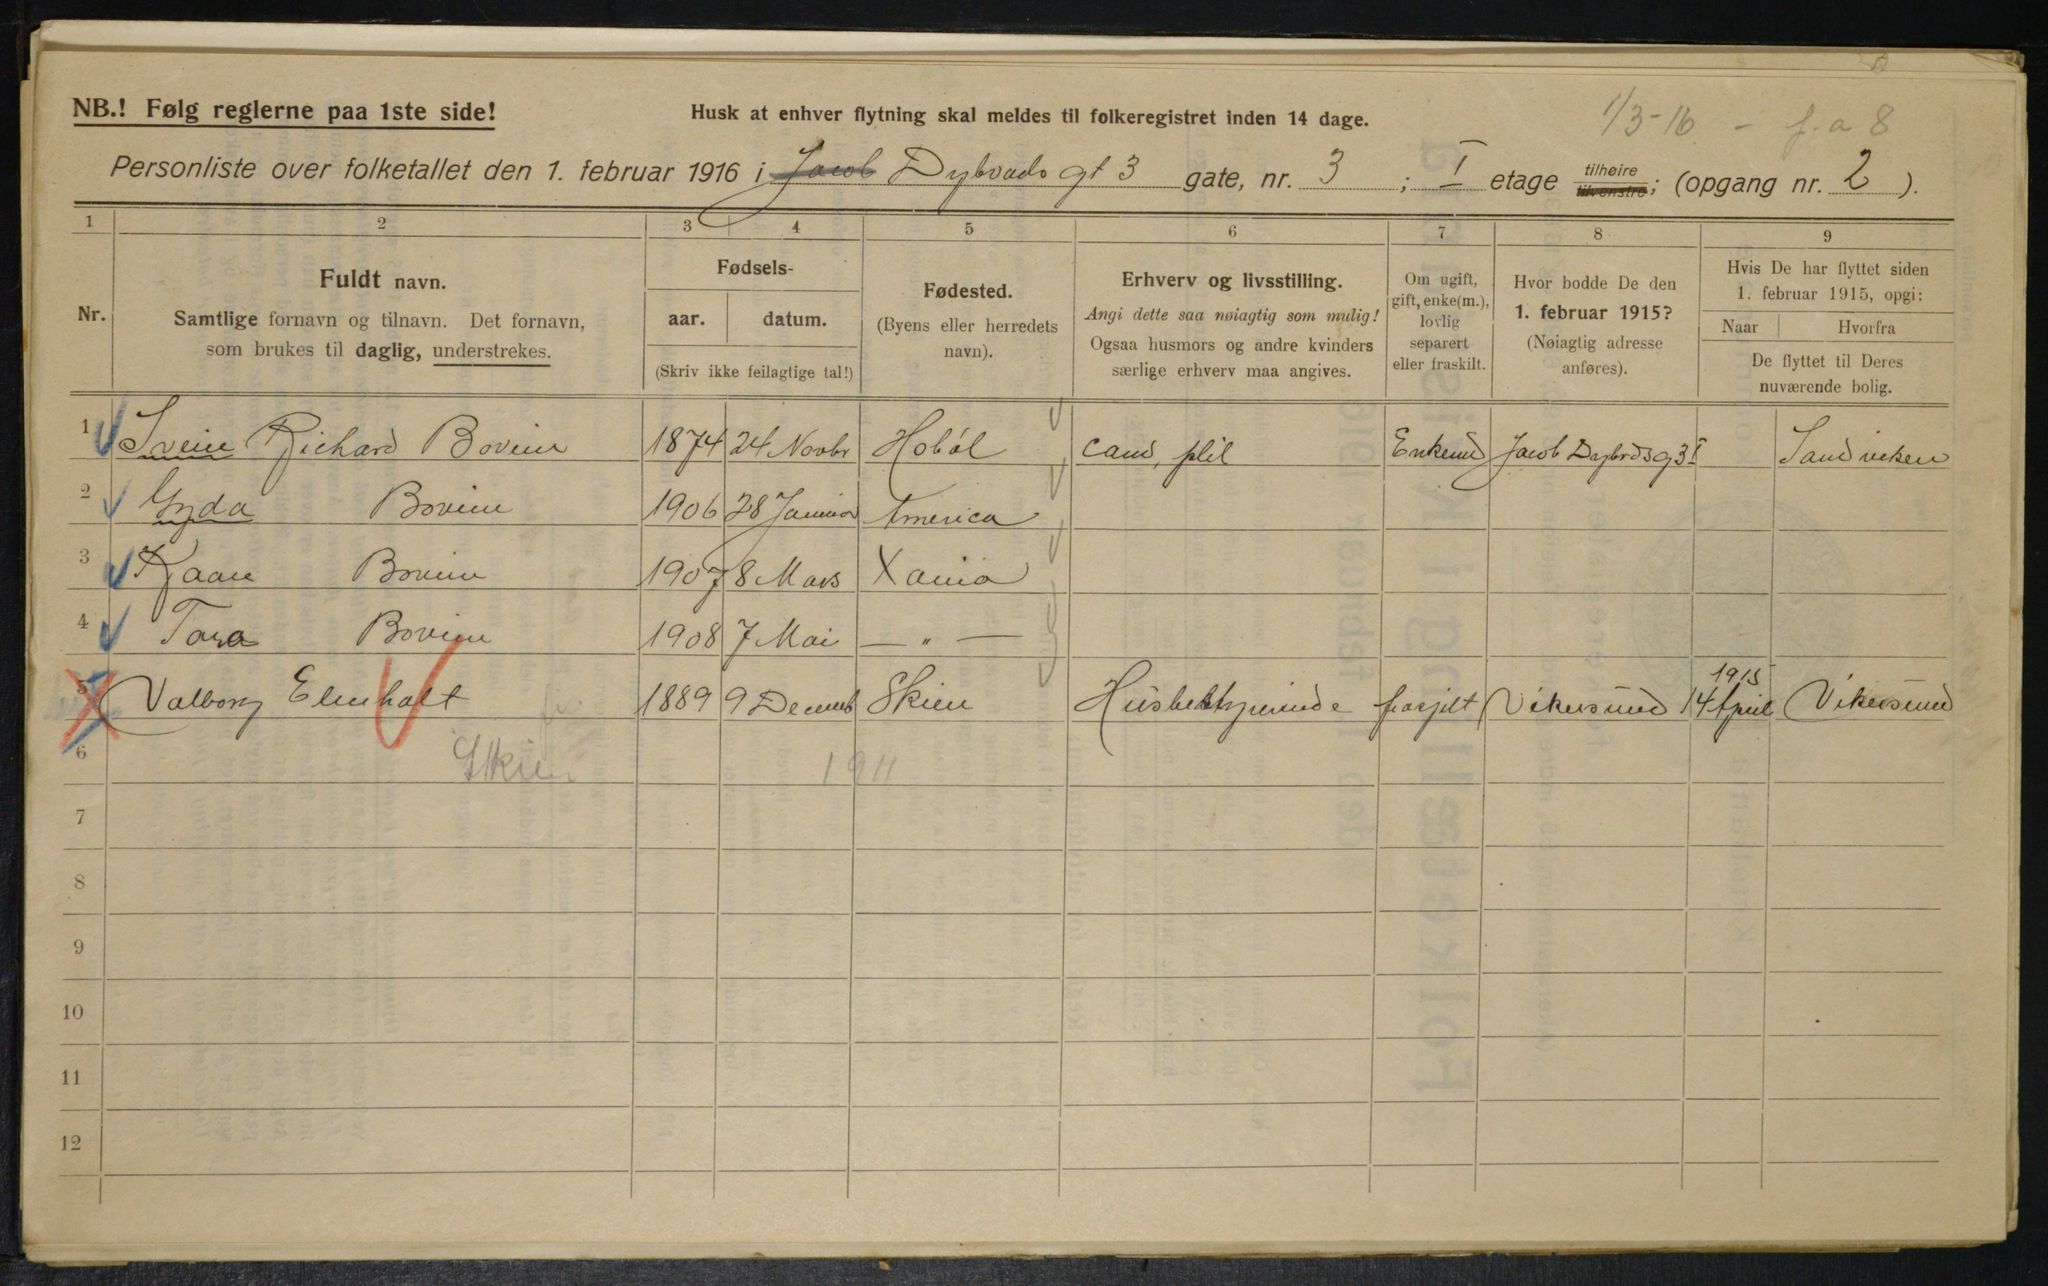 1/3-16 - f. a 8
NB.! Følg reglerne paa 1ste side!
Husk at enhver flytning skal meldes til folkeregistret inden 14 dage.
Personliste over folketallet den 1. februar 1916 i Jacob Dybvads gt 3 gate, nr. 3; I etage tilhøire tilvenstre; (opgang nr. 2).
1 2 3 4 5 6 7 8 9
Nr.
Fuldt navn.
Samtlige fornavn og tilnavn. Det fornavn,
som brukes til daglig, understrekes.
Fødsels-
aar. datum.
(Skriv ikke feilagtige tal!)
Fødested.
(Byens eller herredets
navn).
Erhverv og livsstilling.
Angi dette saa nøiagtig som mulig!
Ogsaa husmors og andre kvinders
særlige erhverv maa angives.
Om ugift,
gift, enke(m.),
lovlig
separert
eller fraskilt.
Hvor bodde De den
1. februar 1915?
(Nøiagtig adresse
anføres).
Hvis De har flyttet siden
1. februar 1915, opgi:
Naar Hvorfra
De flyttet til Deres
nuværende bolig.
1 Svein Richard Bovim 1874 24 Novbr Hobøl cand. phil Enkemd Jacob Dybvdsg 3 I Sandviken
2 Gyda Bovim 1906 28 Januar America
3 Kaare Bovim 1907 8 Mars Xania
4 Tora Bovim 1908 7 Mai — „ —
5 Valborg Elmholt 1889 9 Decemb Skien Husbestyrerinde fraskilt Vikersund 14 April 1915 Vikersund
6 Skien 1911
7
8
9
10
11
12